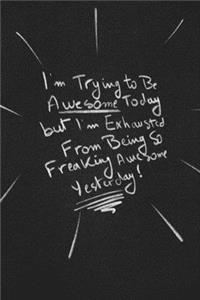 I'm Trying to Be
Awesome Today
but I'm Exhausted
From Being so
Freaking Awesome
Yesterday!